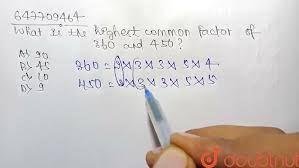 647709464
What is the highest common factor of
360 and 450?
A) 90
B) 45
C) 10
D) 9
360 = 2 × 3 × 3 × 5 × 4
450 = 2 × 3 × 3 × 5 × 5
doubtnut